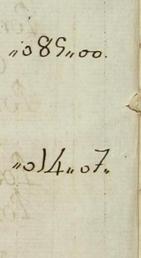 „085„00.
„014„07„